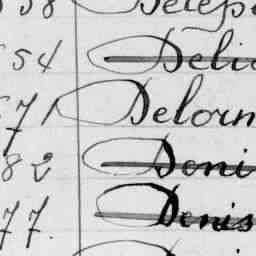 58 Delep
54 Delic
71 Delorn
82 Deni
77. Denis